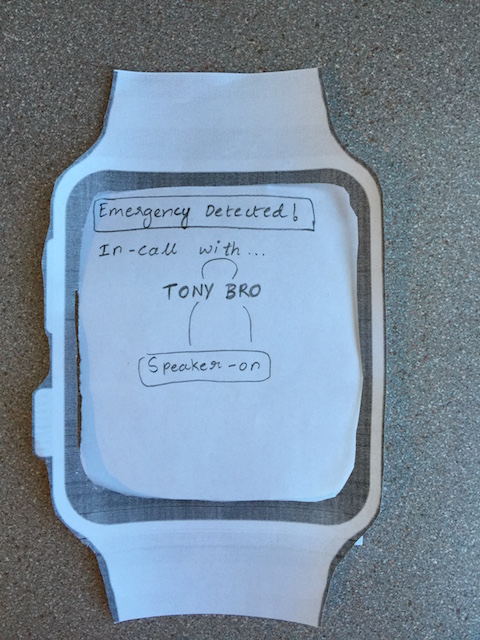 Emergency Detected!
In-call with...
TONY BRO
Speaker-on